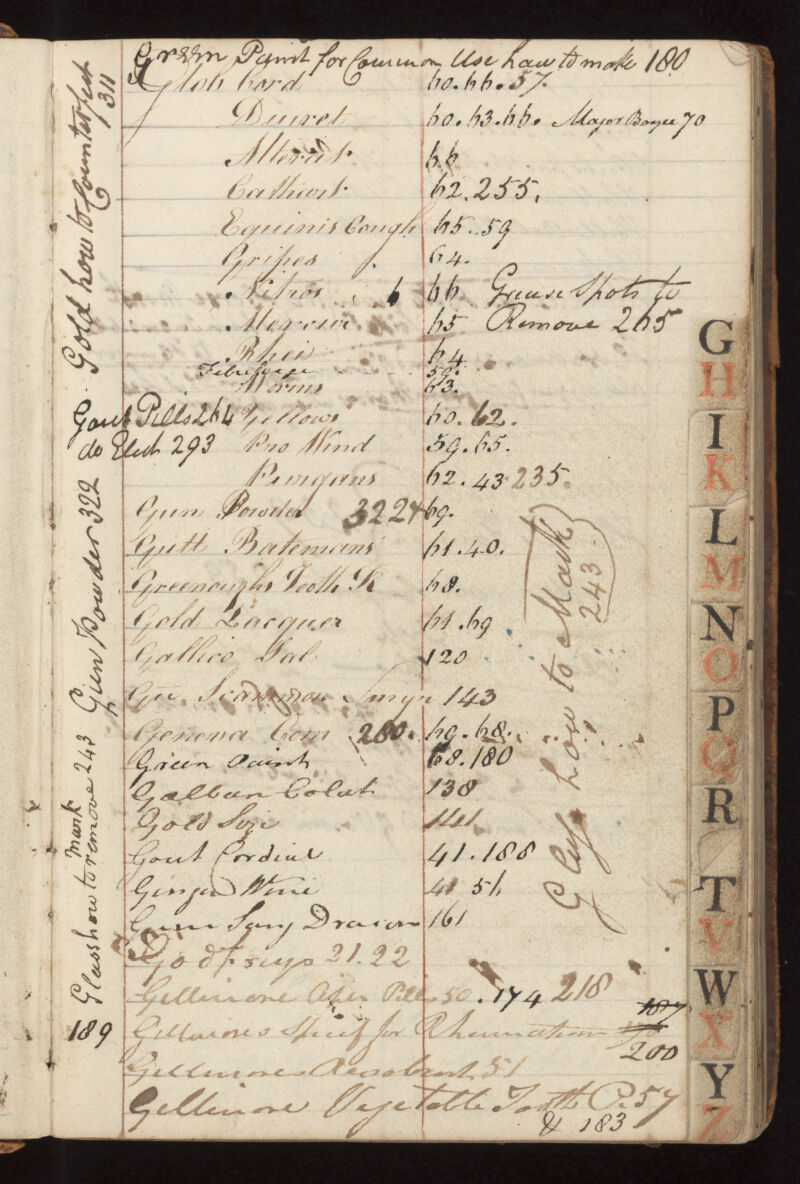 Green Paint for Common Use how to make 180
Glob Cord 60.66.57.
Diuret 60.63.66. Major Bayer 70
Alterat 66
Cathart 62.255.
Equinis Cough 65.59
Gripes 64.
Nitros 6 66 Grease Spots to
Mercur 65 Remove 265
Rhei 64
Febrifuge 59.
Worms 63.
Gout Pills 264 Yellows 60.62.
do Elect 293 Pro Wind 59.65.
Purgans 62.43.235.
Gun Powder 322 69.
Gutt Batemans 61.40.
Greenoughs Tooth 68.
Gold Lacquer 61.69
Gallico Sal 120
Scammon Smyr 143
Geneva Com 280. 69.68.
Green Paint 68.180
Galban Colat 138
Gold Size 141
Gout Cordial 41.188
Ginger Wine 41 51
Gum Sang Dracon 161
21.22
Gellimore Aper Pills 50.174 218
189 Gellimores for Rheumatism 187
200
Gellimores 51
Gellimore Vegetable Tooth P. 57
& 183
Gold how to Counterfeit 311
Gun Powder 322
Glass how to remove mark 243
Glass how to Mark 243.
G
H
I
K
L
M
N
O
P
Q
R
T
V
W
X
Y
Z